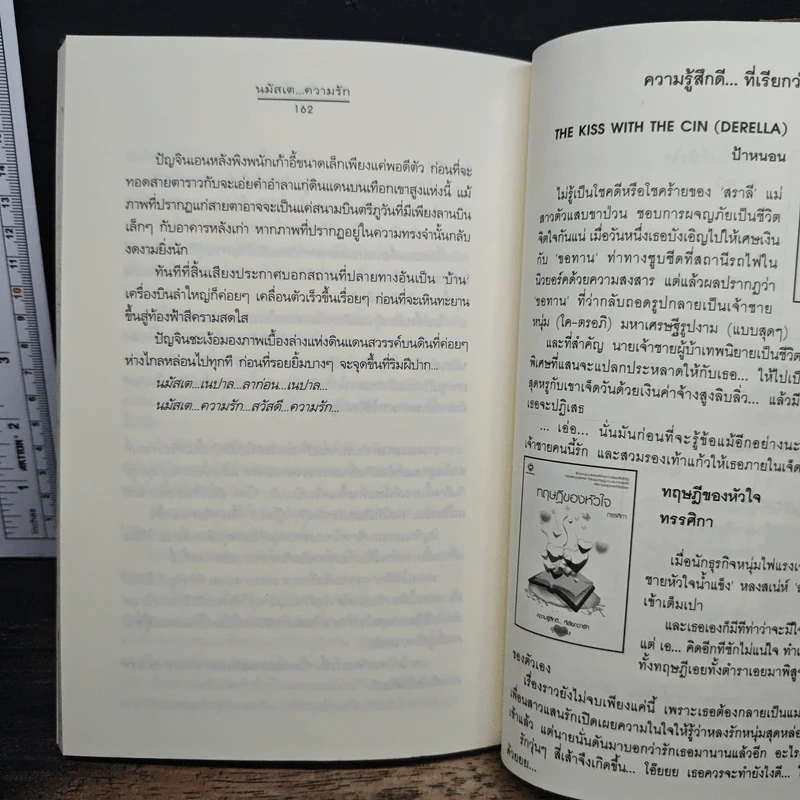 นมัสเต...ความรัก
162
ปัญจินเอนหลังพิงพนักเก้าอี้ขนาดเล็กเพียงแค่พอดีตัว ก่อนที่จะ
ทอดสายตาราวกับจะเอ่ยคำอำลาแก่ดินแดนบนเทือกเขาสูงแห่งนี้ แม้
ภาพที่ปรากฏแก่สายตาอาจจะเป็นแค่สนามบินตรีภูวันที่มีเพียงลานบิน
เล็กๆ กับอาคารหลังเก่า หากภาพที่ปรากฏอยู่ในความทรงจำนั้นกลับ
งดงามยิ่งนัก
ทันทีที่สิ้นเสียงประกาศบอกสถานที่ปลายทางอันเป็น 'บ้าน'
เครื่องบินลำใหญ่ก็ค่อยๆ เคลื่อนตัวเร็วขึ้นเรื่อยๆ ก่อนที่จะเหินทะยาน
ขึ้นสู่ท้องฟ้าสีครามสดใส
ปัญจินชะเง้อมองภาพเบื้องล่างแห่งดินแดนสวรรค์บนดินที่ค่อยๆ
ห่างไกลหล่อนไปทุกที ก่อนที่รอยยิ้มบางๆ จะจุดขึ้นที่ริมฝีปาก...
นมัสเต...เนปาล...ลาก่อน...เนปาล...
นมัสเต...ความรัก...สวัสดี...ความรัก...
ความรู้สึกดี... ที่เรียกว่
THE KISS WITH THE CIN (DERELLA)
ป้าหนอน
ไม่รู้เป็นโชคดีหรือโชคร้ายของ 'สราลี' แม่
สาวตัวแสบขาป่วน ชอบการผจญภัยเป็นชีวิต
จิตใจกันแน่ เมื่อวันหนึ่งเธอบังเอิญไปให้เศษเงิน
กับ 'ขอทาน' ท่าทางซูบซีดที่สถานีรถไฟใน
นิวยอร์คด้วยความสงสาร แต่แล้วผลปรากฏว่า
'ขอทาน' ที่ว่ากลับถอดรูปกลายเป็นเจ้าชาย
หนุ่ม (ใค-ตรอภิ) มหาเศรษฐีรูปงาม (แบบสุดๆ)
และที่สำคัญ นายเจ้าชายผู้บ้าเทพนิยายเป็นชีวิต
พิเศษที่แสนจะแปลกประหลาดให้กับเธอ... ให้ไปเป็
สุดหรูกับเขาเจ็ดวันด้วยเงินค่าจ้างสูงลิบลิ่ว... แล้วมี
เธอจะปฏิเสธ
... เอ่อ... นั่นมันก่อนที่จะรู้ข้อแม้อีกอย่างนะ
เจ้าชายคนนี้รัก และสวมรองเท้าแก้วให้เธอภายในเจ็ด
ทฤษฎีของหัวใจ
ทรรศิกา
ทฤษฎีของหัวใจ
ทรรศิกา
ความรู้สึกดี... ที่เรียกว่ารัก
เมื่อนักธุรกิจหนุ่มไฟแรงเ
ชายหัวใจน้ำแข็ง' หลงสเน่ห์
เข้าเต็มเปา
และเธอเองก็มีทีท่าว่าจะมีใ
แต่ เอ... คิดอีกทีชักไม่แน่ใจ ทำเ
ทั้งทฤษฎีเอยทั้งตำราเอยมาพิสู
ของตัวเอง
เรื่องราวยังไม่จบเพียงแค่นี้ เพราะเธอต้องกลายเป็นแม่
เพื่อนสาวแสนรักเปิดเผยความในใจให้รู้ว่าหลงรักหนุ่มสุดหล่อ
เข้าแล้ว แต่นายนั่นดันมาบอกว่ารักเธอมานานแล้วอีก อะไร
รักวุ่นๆ สี่เส้าจึงเกิดขึ้น... โอ๊ยยย เธอควรจะทำยังไงดี...
ด้วยยย...